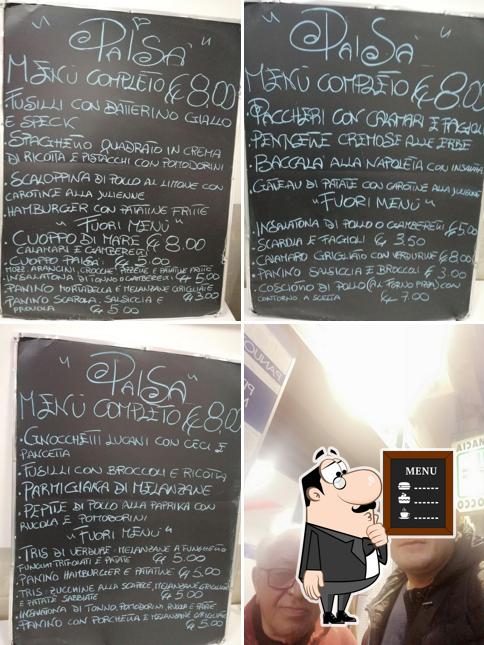 " PaiSa' "
MENÙ COMPLETO € 8.00
• FUSILLI CON DATTERINO GIALLO
E SPECK
• SPAGHETTO QUADRATO IN CREMA
DI RICOTTA E PISTACCHI CON POMODORINI
• SCALOPPINA DI POLLO AL LIMONE CON
CAROTINE ALLA JULIENNE
• HAMBURGER CON PATATINE FRITTE
"FUORI MENÙ"
• CUOPPO DI MARE € 8.00
CALAMARI E GAMBERETTI
CUOPPO PAISA' € 5.00
MOZZ. ARANCINI, CROCCHÈ, PIZZELLE E PATATINE FRITTE
INSALATONA DI TONNO O GAMBERETTI € 5.00
PANINO MORTADELLA E MELANZANE GRIGLIATE € 3.00
PANINO SCAROLA, SALSICCIA E
PROVOLA € 5.00
" PaiSa' "
MENÙ COMPLETO € 8.00
• PACCHERI CON CALAMARI E FAGIOLI
• PENNETTE CREMOSE ALLE ERBE
• BACCALÀ ALLA NAPOLETA CON INSALATA
• GATEAU DI PATATE CON CAROTINE ALLA JULIENNE
"FUORI MENÙ"
• INSALATONA DI POLLO O GAMBERETTI € 5.00
• SCAROLA E FAGIOLI € 3.50
• CALAMARO GRIGLIATO CON VERDURINE € 8.00
• PANINO SALSICCIA E BROCCOLI € 3.00
• COSCIONE DI POLLO (AL FORNO PIZZA) CON
CONTORNO A SCELTA € 7.00
" PaiSa' "
MENÙ COMPLETO € 8.00
• GNOCCHETTI LUCANI CON CECI E
PANCETTA
• FUSILLI CON BROCCOLI E RICOTTA
• PARMIGIANA DI MELANZANE
• PEPITE DI POLLO ALLA PAPRIKA CON
RUCOLA E POMODORINI
"FUORI MENÙ"
• TRIS DI VERDURE: MELANZANE A FUNGHETTO
FUNGHI TRIFOLATI E PATATE € 5.00
• PANINO HAMBURGER E PATATINE € 5.00
• TRIS: ZUCCHINE ALLA SCAPECE, MELANZANE GRIGLIATE
E PATATE SABBIATE € 5.00
• INSALATONA DI TONNO, POMODORINI, RUCOLA E PATATE € 5.00
• PANINO CON PORCHETTA E MELANZANE GRIGLIATE
€ 5.00
MENU